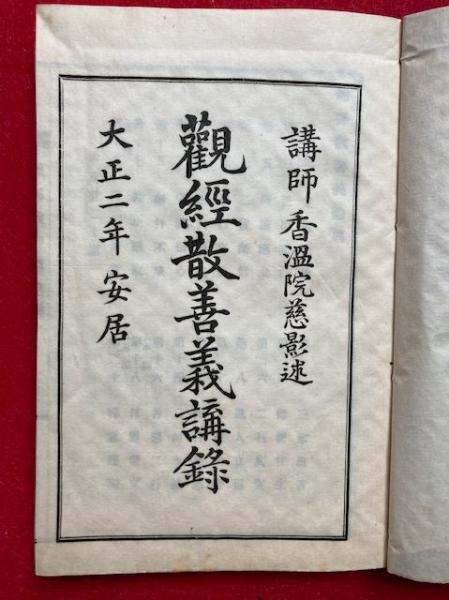 講師香溫院慈影述
觀經散善義講錄
大正二年安居